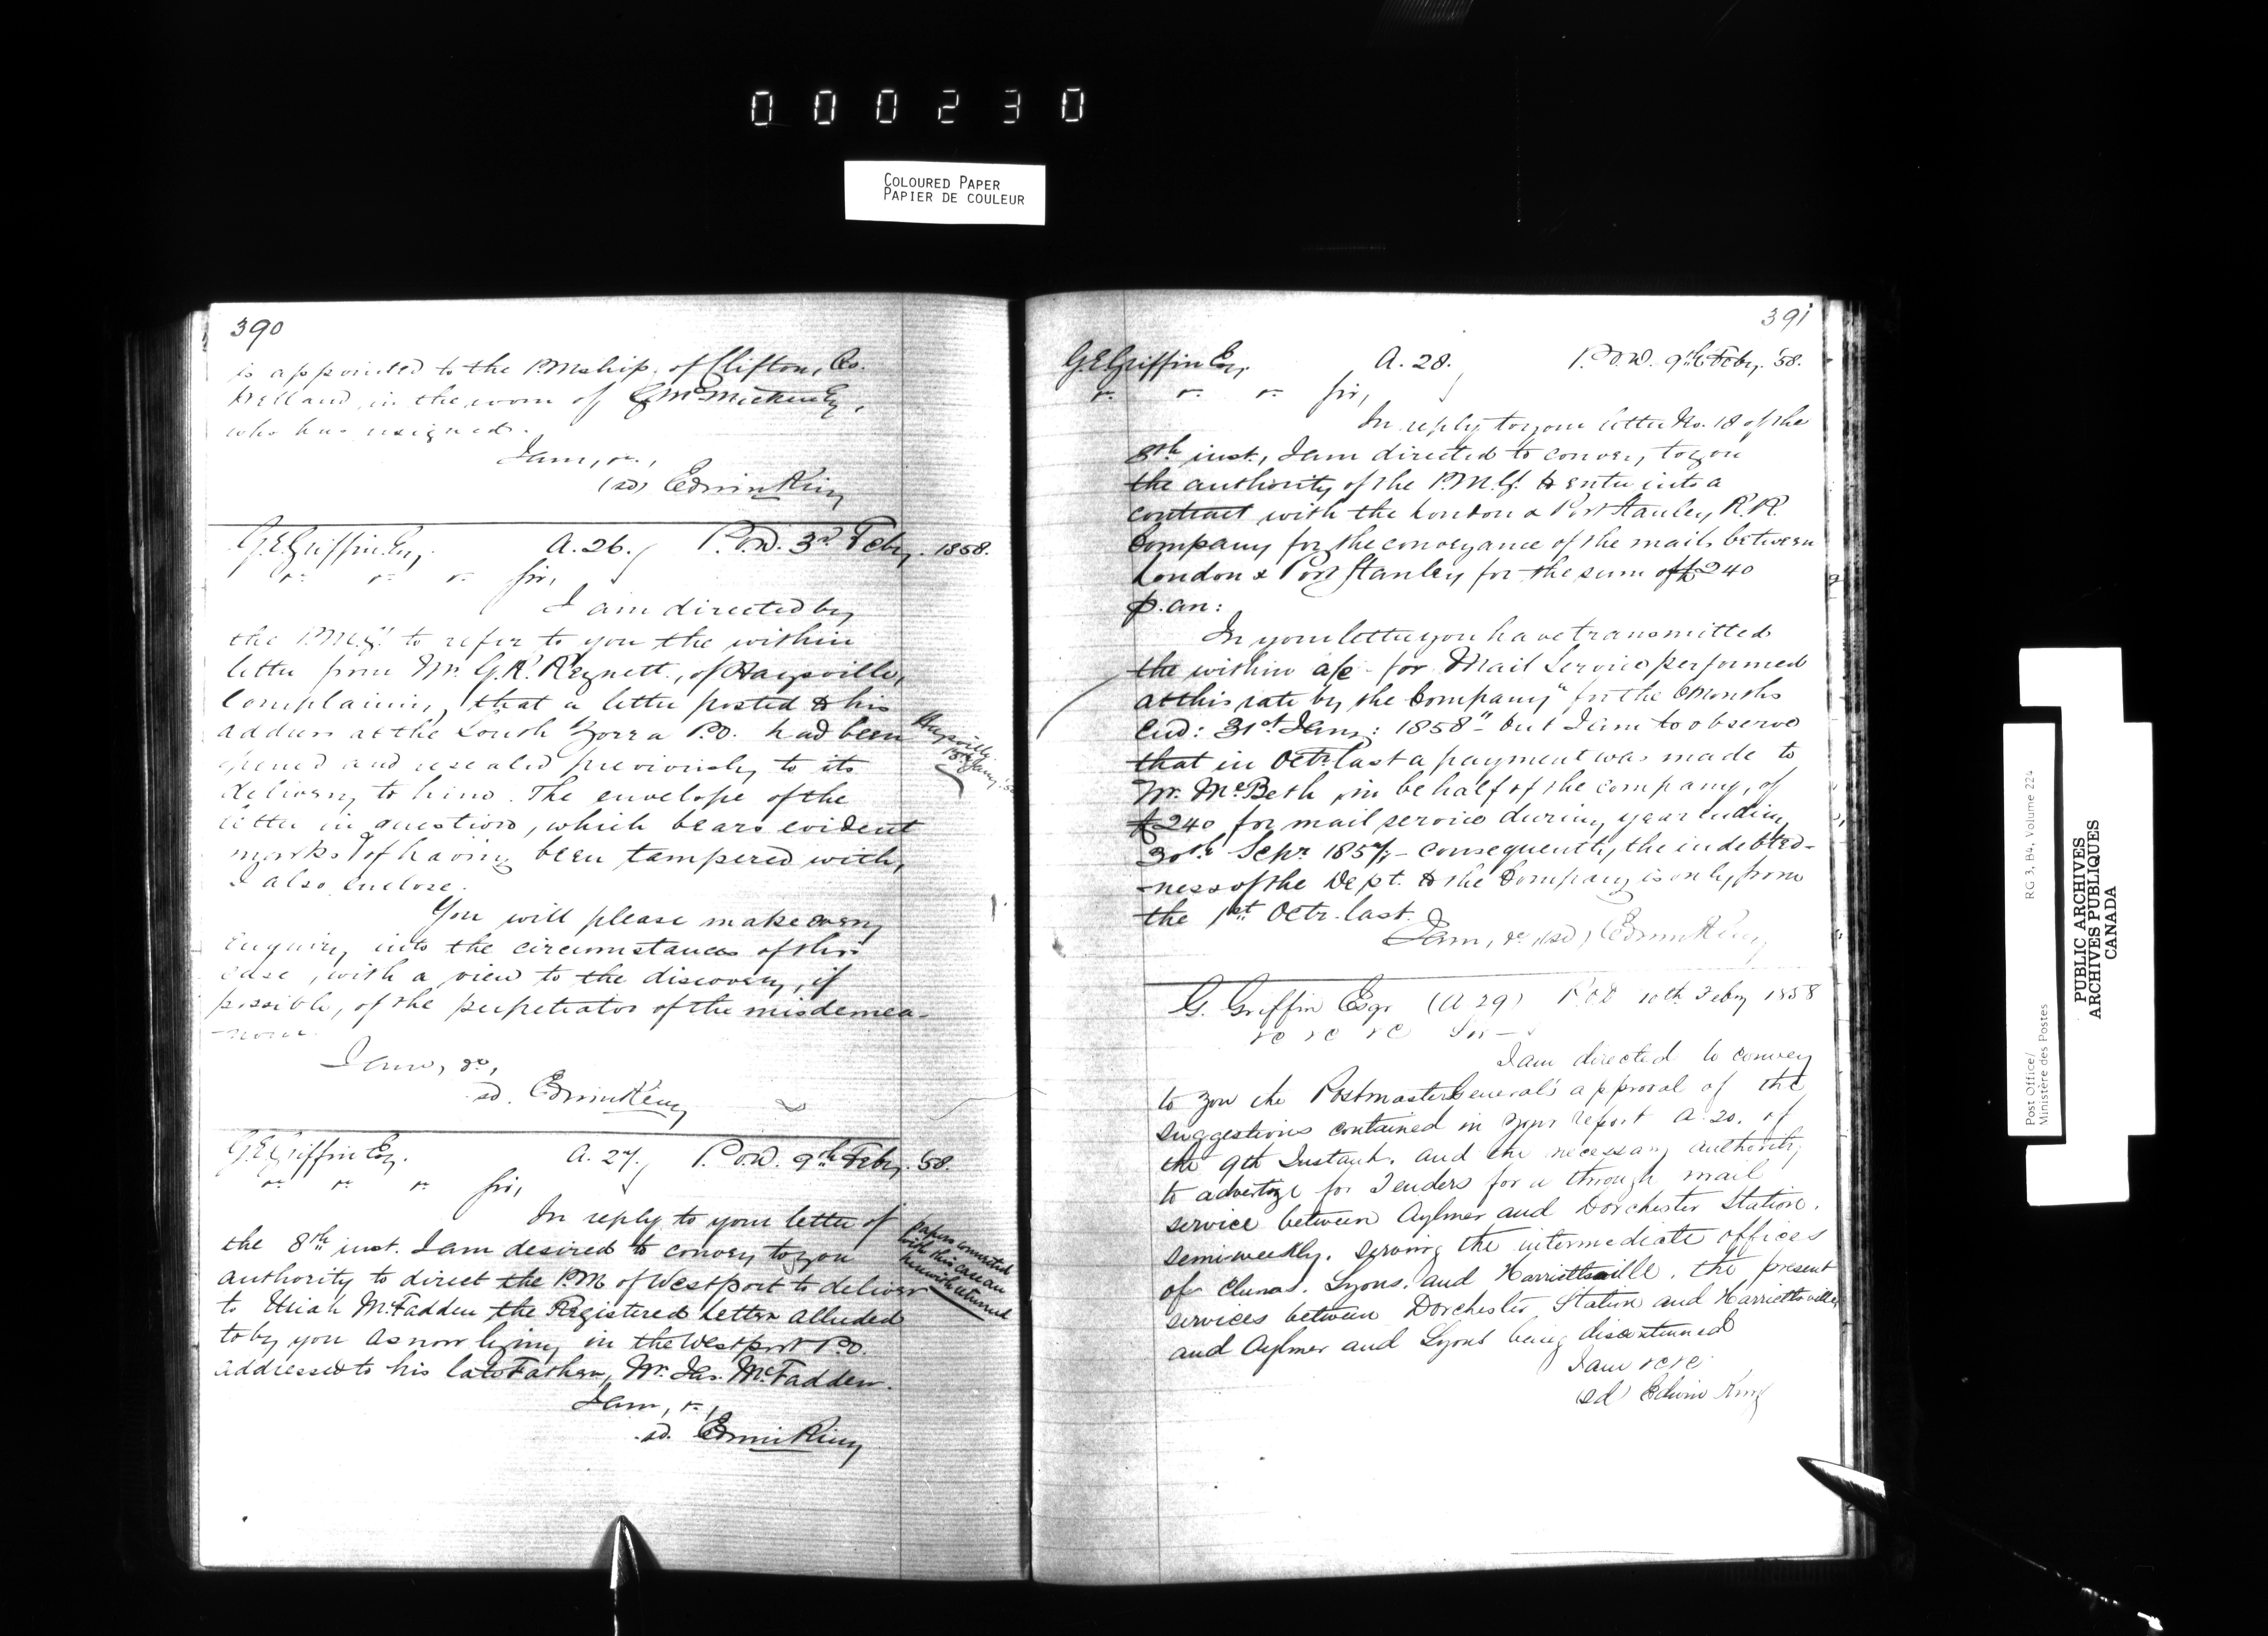 000230
COLOURED PAPER
PAPIER DE COULEUR
390
is appointed to the P.Mship. of Clifton, Co.
Welland in the room of G. McMicken Esq,
who has resigned.
I am, &c.,
(sd) Edwin King
G.E. Griffin Esq. A. 26. P.O.D. 3rd Feby. 1858.
&c &c &c Sir,
I am directed by
the P.M.Gl. to refer to you the within
letter from Mr. G.R. Reynett, of Haysville,
complaining that a letter posted to his
address at the South Zorra P.O. had been
opened and resealed previously to its
delivery to him. The envelope of the
letter in question, which bears evident
marks of having been tampered with,
I also enclose.
Haysville
Jany.
You will please make every
enquiry into the circumstances of this
case, with a view to the discovery, if
possible, of the perpetrator of the misdemea-
-nour.
I am, &c,
sd. Edwin King
G.E. Griffin Esq. A. 27. P.O.D. 9th Feby. '58.
&c &c &c Sir,
In reply to your letter of
the 8th inst. I am desired to convey to you
authority to direct the P.M. of Westport to deliver
to Uriah McFadden the Registered Letter alluded
to by you as now lying in the Westport P.O.
addressed to his late Father, Mr. Jas. McFadden.
papers connected
with this case are
herewith returned
I am, &c,
sd. Edwin King
391
G.E. Griffin Esq, A. 28. P.O.D. 9th Feby. '58.
&c &c &c Sir,
In reply to your letter No. 18 of the
8th inst., I am directed to convey to you
the authority of the P.M.G. to enter into a
contract with the London & Port Stanley R.R.
Company for the conveyance of the mails between
London & Port Stanley for the sum of £240
p. an:
In your letter you have transmitted
the within a/c for Mail Service performed
at this rate by the Company "for the 6 Months
End: 31st Jany: 1858" - but I am to observe
that in Octr. last a payment was made to
Mr. McBeth, in behalf of the company, of
£240 for mail service during year ending
30th Sepr. 1857, - consequently, the indebted-
-ness of the Dept. to the Company is only from
the 1st Octr. last.
I am, &c (sd) Edwin King
G. Griffin Esqr (A 29) P.O.D 10th Feby 1858
&c &c &c Sir -
I am directed to convey
to you the Postmaster General's approval of the
suggestions contained in your report A. 20. of
the 9th Instant. and the necessary authority
to advertize for Tenders for a through mail
service between Aylmer and Dorchester Station.
semi-weekly. serving the intermediate offices
of Lyons. and Harriettsville. the present
services between Dorchester Station and Harriettsville
and Aylmer and Lyons being discontinued
I am &c &c
(sd) Edwin King
Post Office/ RG 3, B4, Volume 224
Ministère des Postes
PUBLIC ARCHIVES
ARCHIVES PUBLIQUES
CANADA